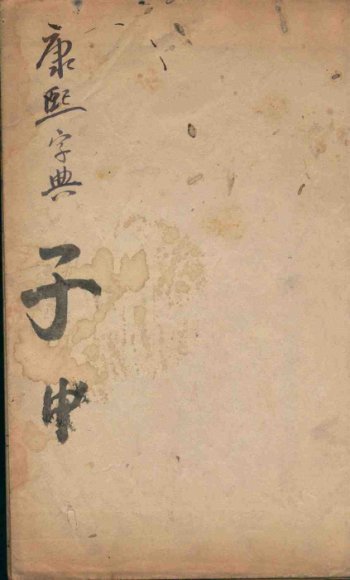 康熙字典 子中